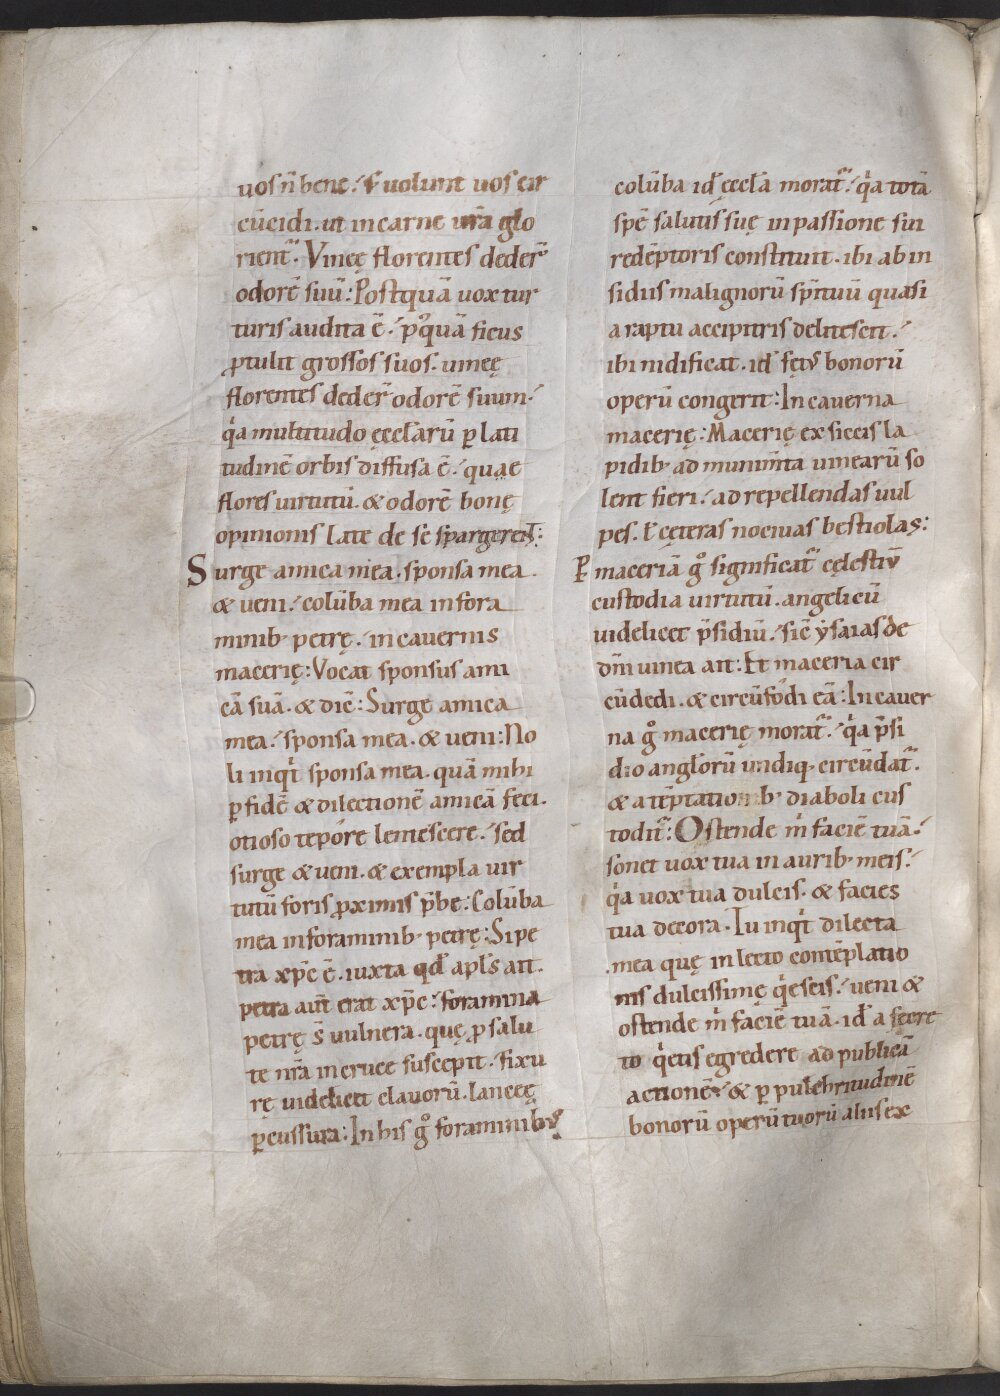 uos n̄ bene. s; uolunt uos cir
cūcidi. ut in carne urā̄ glo
rient᷑. Vineę florentes deder̄
odorē suū: Postquā uox tur
turis audita ē. pꝰquā ficus
ꝓtulit grossos suos. uineę
florentes deder̄ odorē suum.
qͣa multitudo ęcclarū ꝑ lati
tudinē orbis diffusa ē. quae
flores uirtutū. & odorē bonę
opinionis late de se spargeret:
Surge amica mea. sponsa mea.
& ueni. colūba mea in fora
minib; petrę. in cauernis
macerię: Vocat sponsus ami
cā suā. & dic̄: Surge amica
mea. sponsa mea. & ueni: No
li inqͥt sponsa mea. quā mihi
ꝑ fidē & dilectionē amicā feci.
otioso tepore lentescere. sed
surge & ueni. & exempla uir
tutū foris ꝓximis p̄be: Colūba
mea in foraminib; petrę: Si pe
tra xp̄c ē. iuxta qđ apls̄ ait.
petra aut̄ erat xp̄c: foramina
petrę s̄ uulnera. quę ꝓ salu
te nr̄a in cruce suscepit. fixu
rę uidelicet clauorū. lanceę
ꝑcussura: In his gͦ foraminibꝰ
colūba id̄ ęccl̄a morat᷑. qͣa totā
spē salutis suę in passione sui
redēptoris constituit. ibi ab in
sidiis malignorū sp̄ituū quasi
a raptu accipitris delitescit.
ibi nidificat. id̄ fętꝰ bonorū
operū congerit: In cauerna
macerię: Macerię ex siccis la
pidib; ad munim̄ta uinearū so
lent fieri. ad repellendas uul
pes. ł cęteras nociuas bestiolas:
P maceriā gͦ significat᷑ cęlestiū
custodia uirtutū. angelicū
uidelicet p̄sidiū. sic̄ ẏsaias de
dn̄i uinea ait: Et maceria cir
cūdedi. & circūfodi eā: In cauer
na gͦ macerię morat᷑. qͣa p̄si
dio anglorū undiq; circūdat᷑.
& a tēptationib; diaboli cus
todit᷑: Ostende m̄ faciē tuā.
sonet uox tua in aurib; meis.
qͣa uox tua dulcis. & facies
tua decora. Tu inqͥt dilecta
mea quę in lecto contēplatio
nis dulcissimę qͥescis. ueni &
ostende m̄ faciē tuā. id̄ a secre
to qͥetis egredere ad publicā
actionē. & ꝑ pulchritudinē
bonorū operū tuorū aliis ex